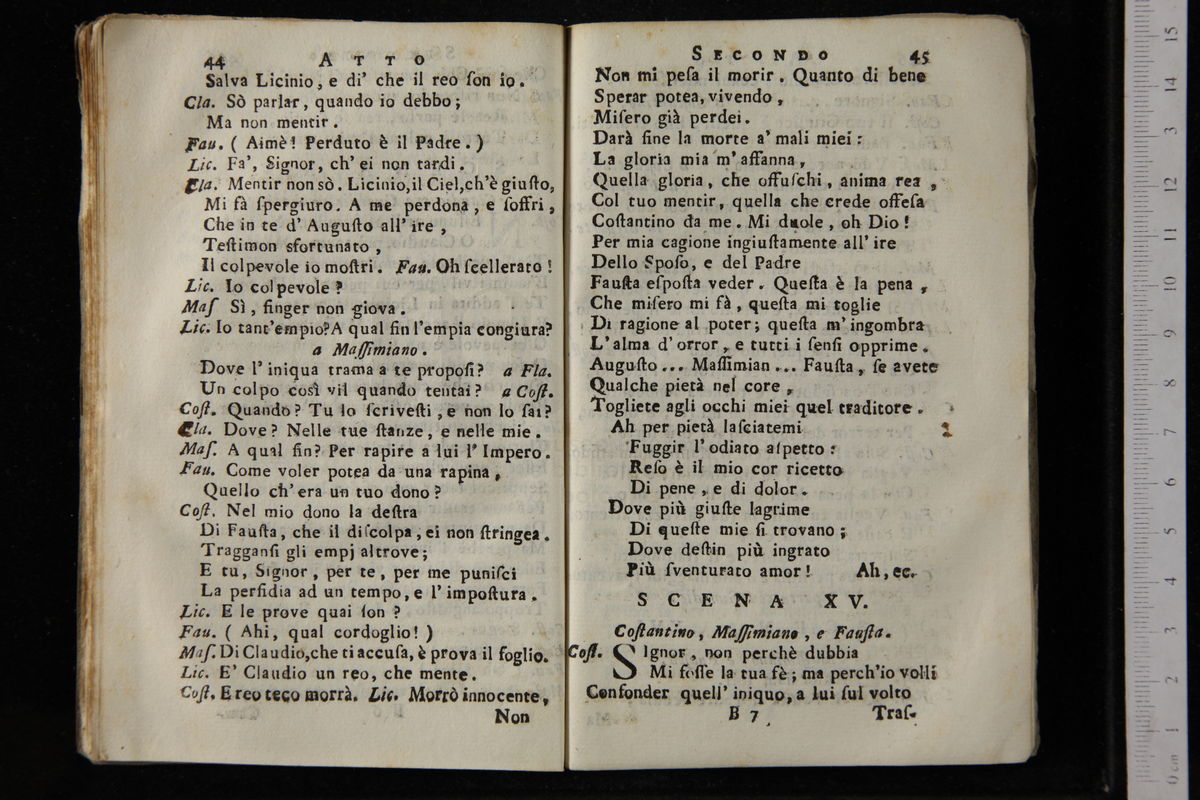 44 ATTO
Salva Licinio, e di' che il reo ſon io.
Cla. Sò parlar, quando io debbo;
Ma non mentir.
Fau. ( Aimè! Perduto è il Padre. )
Lic. Fa', Signor, ch' ei non tardi.
Cla. Mentir non sò. Licinio, il Ciel, ch'è giuſto,
Mi fà ſpergiuro. A me perdona, e ſoffri,
Che in te d' Auguſto all' ire,
Teſtimon sfortunato,
Il colpevole io moſtri. Fau. Oh ſcellerato!
Lic. Io colpevole?
Maſ Sì, finger non giova.
Lic. Io tant'empio? A qual fin l'empia congiura?
a Maſſimiano.
Dove l' iniqua trama a te propoſi? a Fla.
Un colpo così vil quando tentai? a Coſt.
Coſt. Quando? Tu lo ſcriveſti, e non lo ſai?
Cla. Dove? Nelle tue ſtanze, e nelle mie.
Maſ. A qual fin? Per rapire a lui l' Impero.
Fau. Come voler potea da una rapina,
Quello ch' era un tuo dono?
Coſt. Nel mio dono la deſtra
Di Fauſta, che il diſcolpa, ei non ſtringea.
Tragganſi gli empj altrove;
E tu, Signor, per te, per me puniſci
La perfidia ad un tempo, e l' impoſtura.
Lic. E le prove quai ſon?
Fau. ( Ahi, qual cordoglio! )
Maſ. Di Claudio, che ti accuſa, è prova il foglio.
Lic. E' Claudio un reo, che mente.
Coſt. E reo teco morrà. Lic. Morrò innocente,
Non
SECONDO 45
Non mi peſa il morir. Quanto di bene
Sperar potea, vivendo,
Miſero già perdei.
Darà fine la morte a' mali miei:
La gloria mia m' affanna,
Quella gloria, che offuſchi, anima rea,
Col tuo mentir, quella che crede offeſa
Coſtantino da me. Mi duole, oh Dio!
Per mia cagione ingiuſtamente all' ire
Dello Spoſo, e del Padre
Fauſta eſpoſta veder. Queſta è la pena,
Che miſero mi fà, queſta mi toglie
Di ragione al poter; queſta m' ingombra
L' alma d' orror, e tutti i ſenſi opprime.
Auguſto... Maſſimian... Fauſta, ſe avete
Qualche pietà nel core,
Togliete agli occhi miei quel traditore.
Ah per pietà laſciatemi
Fuggir l' odiato aſpetto:
Reſo è il mio cor ricetto
Di pene, e di dolor.
Dove più giuſte lagrime
Di queſte mie ſi trovano;
Dove deſtin più ingrato
Più ſventurato amor! Ah, ec.
SCENA XV.
Coſtantino, Maſſimiano, e Fauſta.
Coſt. SIgnor, non perchè dubbia
Mi foſſe la tua fè; ma perch'io volli
Confonder quell' iniquo, a lui ſul volto
B 7 Traſ-